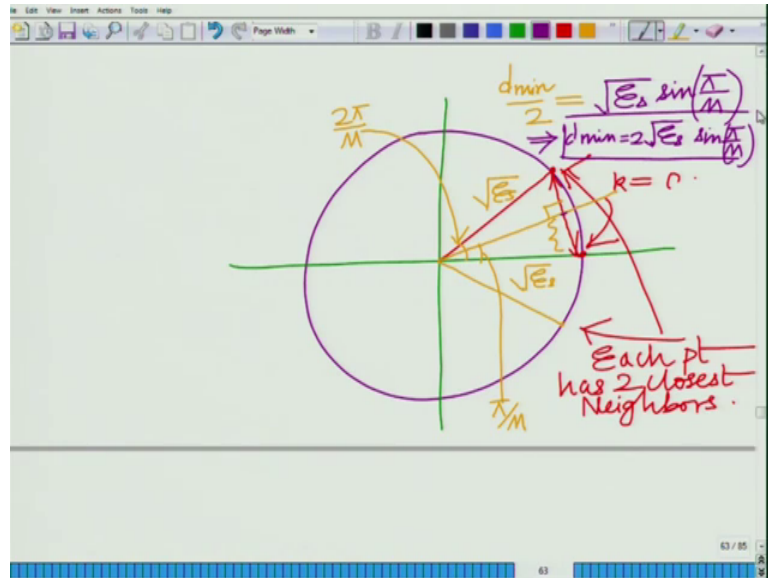 File Edit View Insert Actions Tools Help
Page Width
B I
dmin/2 = √Es sin(π/M)
⇒ dmin=2√Es sin(π/M)
2π/M
√Es
k=0.
√Es
π/M
Each pt
has 2 closest
Neighbors.
63 / 85
63